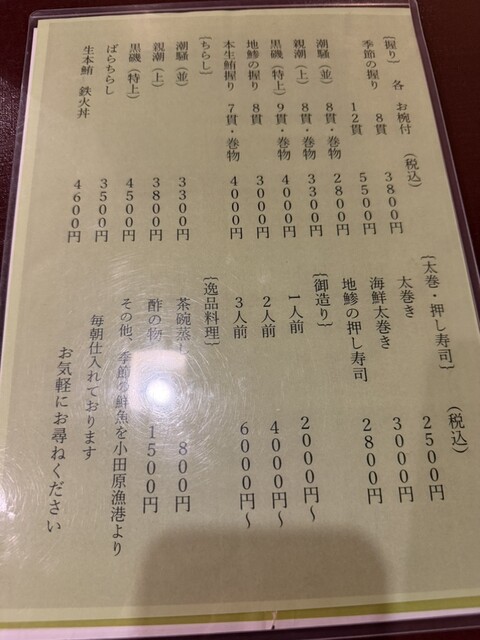 〔握り〕 各 お椀付 (税込)
季節の握り 8貫 3800円
12貫 5500円
潮騒（並） 8貫・巻物 2800円
親潮（上） 8貫・巻物 3300円
黒磯（特上） 9貫・巻物 4000円
地鯵の握り 8貫 3000円
本生鮪握り 7貫・巻物 4000円
〔ちらし〕
潮騒（並） 3300円
親潮（上） 3800円
黒磯（特上） 4500円
ばらちらし 3500円
生本鮪 鉄火丼 4600円
〔太巻・押し寿司〕 (税込)
太巻き 2500円
海鮮太巻き 3000円
地鯵の押し寿司 2800円
〔御造り〕
1人前 2000円〜
2人前 4000円〜
3人前 6000円〜
〔逸品料理〕
茶碗蒸し 800円
酢の物 1500円
その他、季節の鮮魚を小田原漁港より
毎朝仕入れております
お気軽にお尋ねください